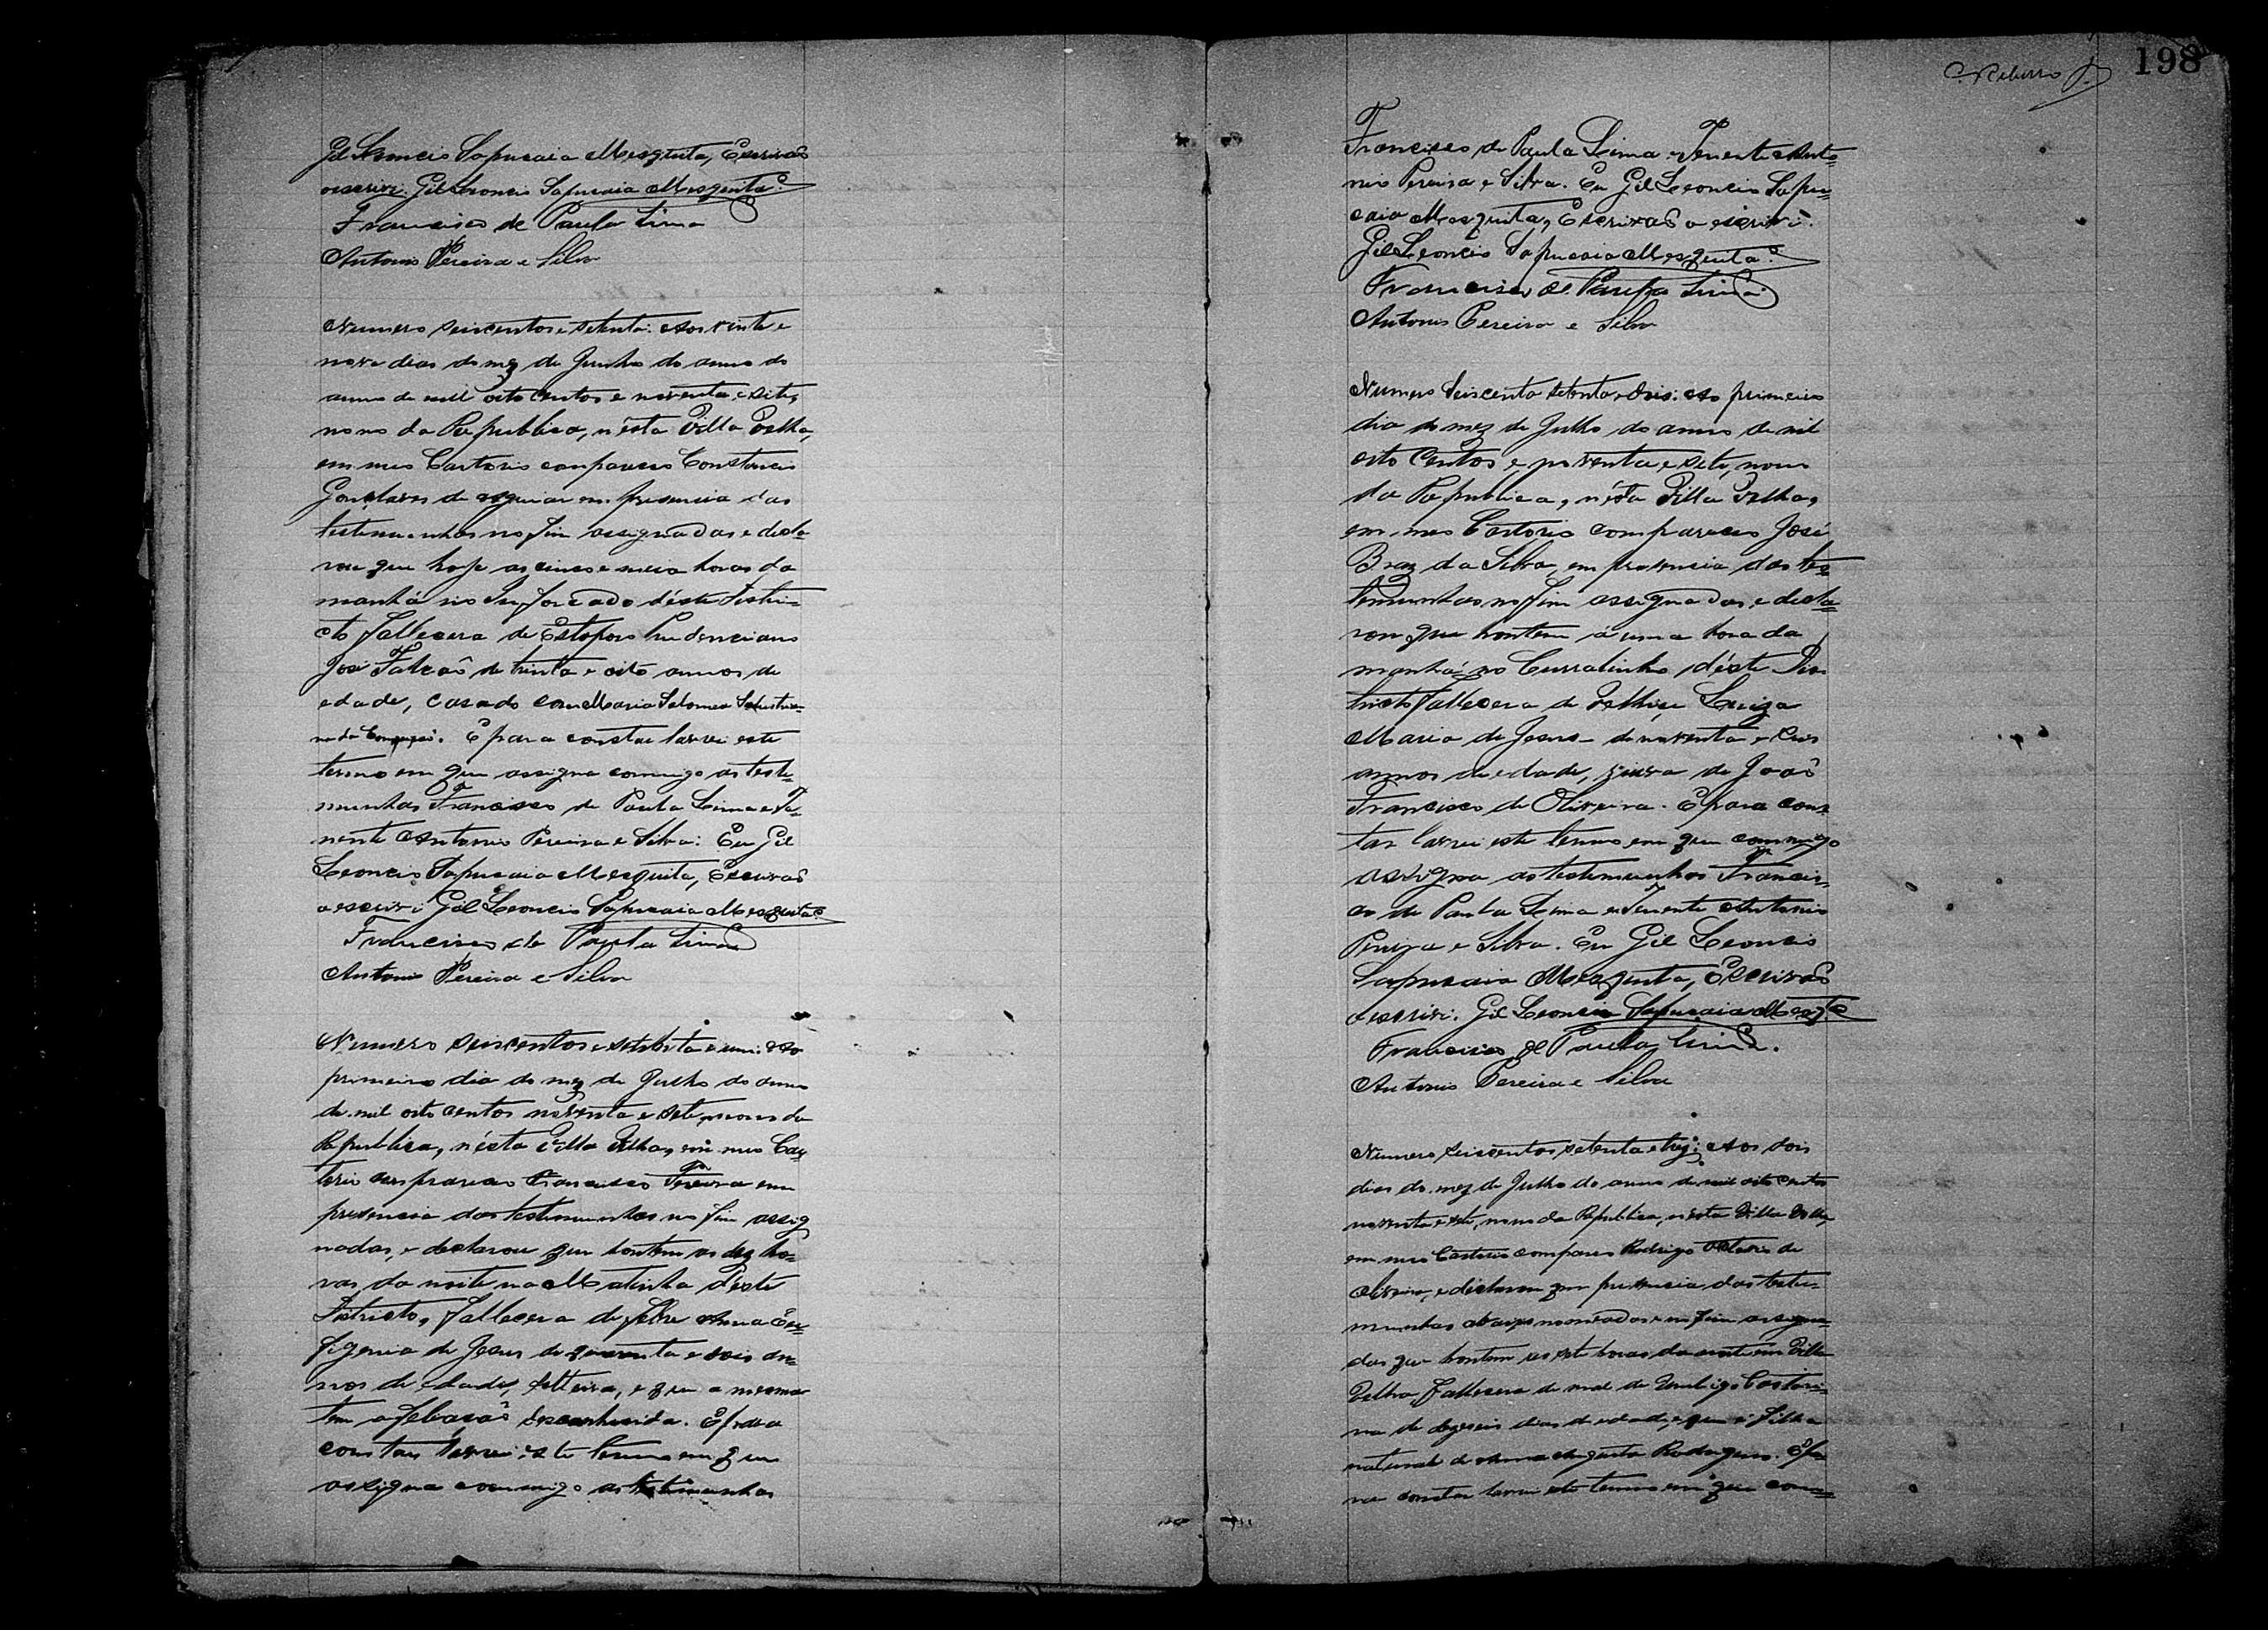 Gil Leoncio Sapucaia Mesquita, Escrivaõ
o escrivi. Gil Leoncio Sapucaia Mesquita.
Francisco de Paula Lima
Antonio Pereira e Silva
Numero seiscentos e setenta: Aos vinte e
nove dias do mez de Junho do anno do
anno de mil oito centos e noventa e sete,
nono da Republica, n'ésta Villa Velha,
em meo Cartorio compareceo Constancio
Gonçalves de Aguiar em presencia das
testemunhas no fim assignadas e decla-
rou que hoje as cinco e meia horas da
manhã no d'éste Distri-
cto fallecera de Estopor Prudenciano
José Falcaõ de trinta e oito annos de
edade, casado com Maria Salomea
na da Conceiçaõ. E para constar lavrei este
termo em que assigna commigo as teste-
munhas Francisco de Paula Lima e Te-
nente Antonio Pereira e Silva: Eu Gil
Leoncio Sapucaia Mesquita, Escrivaõ
o escrivi Gil Leoncio Sapucaia Mesquita.
Francisco de Paula Lima
Antonio Pereira e Silva
Numero seiscentos e setenta e um: Ao
primeiro dia do mez de Julho do anno
de mil oito centos noventa e sete, nono da
Republica, n'ésta Villa Velha, em meo Car-
torio compareceo Francisco Pereira em
presencia das testemunhas no fim assig
nadas, e declarou que hontem as dez ho-
ras da noite na Matinha d'éste
Districto, fallecera de febre Anna
figenia de Jesus de quarenta e dois an-
nos de edade, solteira, e que a mesma
tem a filiaçaõ desconhecida. E para
constar lavrei este termo em que
assigna commigo as testemunhas
C. Rebusso J.
198
Francisco de Paula Lima e Tenente Anto-
nio Pereira e Silva. Eu Gil Leoncio Sapu-
caia Mesquita, Escrivaõ o escrivi.
Gil Leoncio Sapucaia Mesquita.
Francisco de Paula Lima
Antonio Pereira e Silva
Numero seiscento setenta e dois: Ao primeiro
dia do mez de Julho do anno de mil
oito centos e noventa e sete, nono
da Republica, n'ésta Villa Velha,
em meo Cartorio compareceo José
Braz da Silva, em presencia das tes-
temunhas no fim assignadas, e decla-
rou que hontem á uma hora da
manhã no Curralinho d'éste Dis
tricto fallecera de Velhice Luiza
Maria de Jesus de noventa e
annos de edade, viuva de Joaõ
Francisco de Oliveira. E para cons-
tar lavrei este termo em que commigo
assigna as testemunhas Francis-
co de Paula Lima e Tenente Antonio
Pereira e Silva. Eu Gil Leoncio
Sapucaia Mesquita, Escrivaõ
o escrivi. Gil Leoncio Sapucaia Mesq.ta
Francisco de Paula Lima.
Antonio Pereira e Silva
Numero seiscentos setenta e trez: Aos dois
dias do mez de Julho do anno de mil oito centos
noventa e sete, nono da Republica, n'ésta Villa Velha,
em meo Cartorio compareceo Rodrigo Octavio de
Oliveira, e declarou em presencia das teste-
munhas abaixo nomeadas e no fim assigna-
das que hontem as sete horas da noite em Villa
Velha fallecera de mal de Umbigo
na de dezeseis dias de edade, e que é filha
natural de Anna Augusta Rodrigues. E pa-
ra constar lavrei este termo em que com-